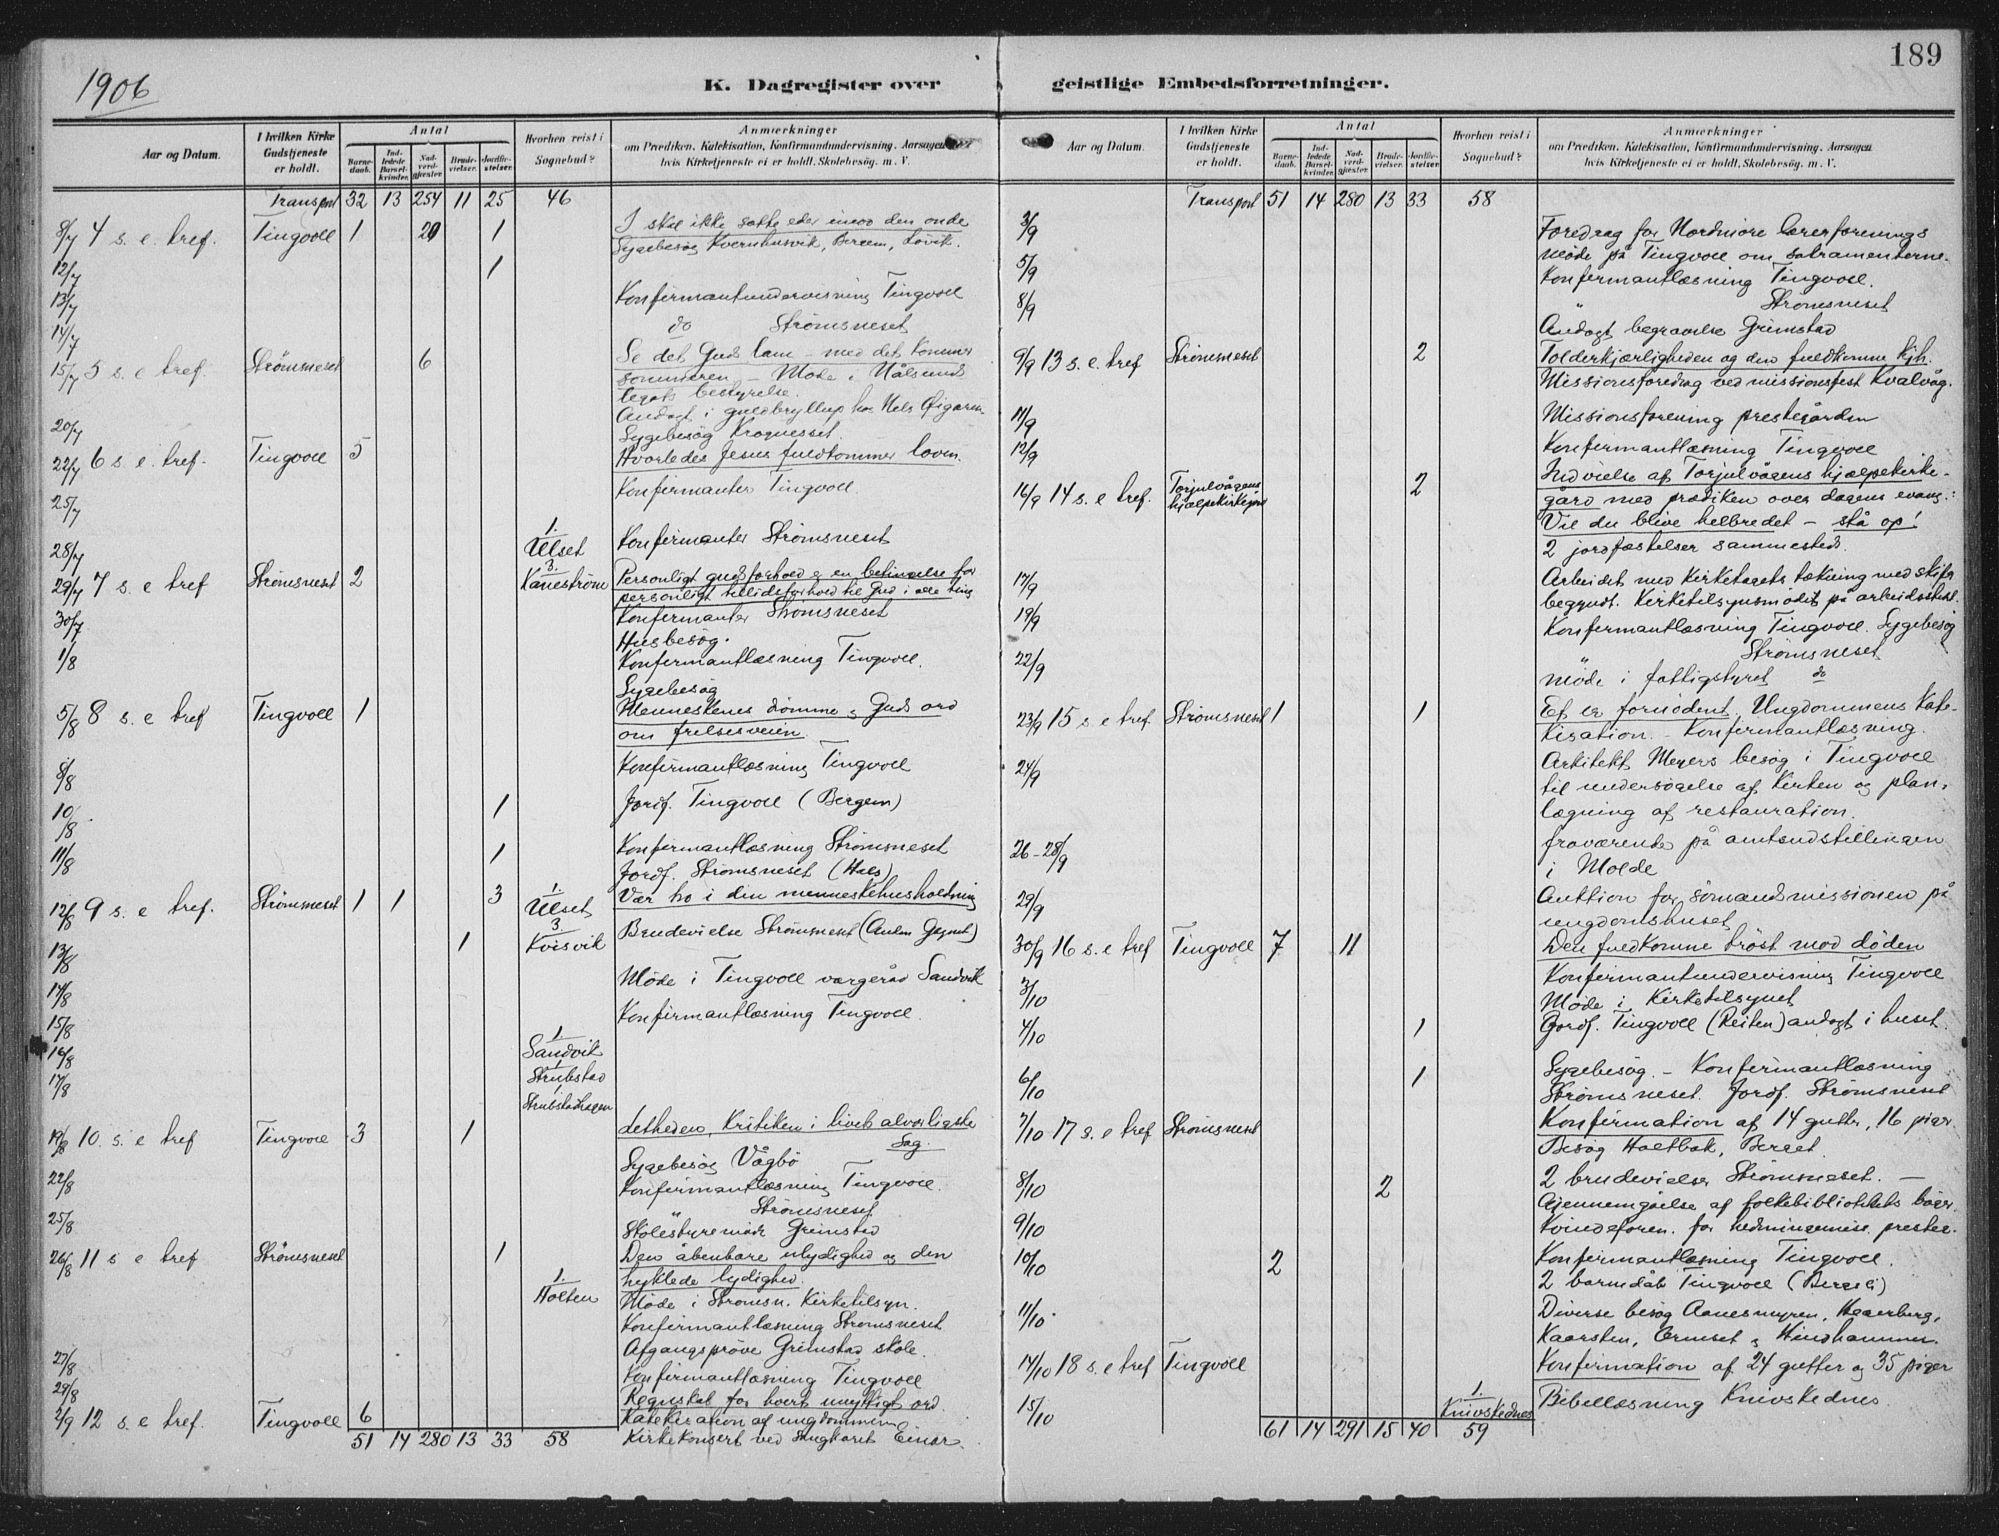 1906
K. Dagregister over
Aar og Datum.
I hvilken Kirke Gudstjeneste er holdt.
Antal
Barnedaab.
Indledede Barselkvinder.
Nadverdgjæster.
Brudevielser.
Jordfæstelser.
Hvorhen reist i Sognebud?
Anmærkninger
om Prædiken. Katekisation. Konfirmandundervisning. Aarsagen
hvis Kirketjeneste ei er holdt. Skolebesøg. m. V.
Transport 32 13 254 11 25 46
8/7 4 s. e. tref. Tingvoll 1 20 1 I skal ikke sætte eder imod den onde
Sygebesøg Kvernhusvik, Bergem, Løvik.
12/7 1
13/7 Konfirmantundervisning Tingvoll
14/7 do Strømsneset
15/7 5 s. e. tref. Strømsneset 6 Se det Guds lam – med det kommer
sommeren – Møde i Nålsunds
legats bestyrelse.
Andagt i guldbryllup hos Nels Øigaren
20/7 Sygebesøg Kroqnesset.
22/7 6 s. e. tref. Tingvoll 5 Hvorledes Jesus fuldkommer loven.
25/7 Konfirmanter Tingvoll
28/7 1. Ulset Konfirmanter Strømsneset
29/7 7 s. e tref Strømsneset 2 3. Kanestrøm Personligt gudsforhold er en betingelse for
personligt tillidsforhold til Gud i alle ting
30/7 Konfirmanter Strømsneset
Husbesøg.
1/8 Konfirmantlæsning Tingvoll.
Sygebesøg
5/8 8 s. e tref Tingvoll 1 Menneskenes domme og Guds ord
om frelsesveien.
8/8 Konfirmantlæsning Tingvoll
10/8 1 Jordf. Tingvoll (Bergem)
11/8 1 Konfirmantlæsning Strømsneset
Jordf. Strømsneset (Hals)
12/8 9 s. e tref. Strømsneset 1 1 3 1. Ulset Vær tro i din menneskehusholdning
13/8 1 3. Kvisvik Brudevielse Strømsneset
14/8 Møde i Tingvoll værgeråd Sandvik
15/8 Konfirmantlæsning Tingvoll.
16/8 1. Sandvik
17/8 1 Strubstad
1 Strubstadhagen
19/8 10. s. e tref Tingvoll 3 1 Letheden, Kritiken i livets alvorligste
Sag.
Sygebesøg Vågbø
22/8 Konfirmantlæsning Tingvoll.
25/8 „ Strømsneset
Skolestyremøde Grimstad
26/8 11 s e tref Strømsneset 1 Den åbenbare ulydighed og den
hyklede lydighed.
1. Holten Møde i Strømsn. Kirketilsyn.
Konfirmantlæsning Strømsneset
27/8 Afgangsprøve Grimstad skole.
29/8 Konfirmantlæsning Tingvoll
Regnskab for hvert unyttigt ord.
2/9 12 s. e tref. Tingvoll 6 Katekisation af ungdommen.
51 14 280 13 33 58 Kirkekonsert ved sangkoret Einar.
189
geistlige Embedsforretninger.
Aar og Datum.
I hvilken Kirke Gudstjeneste er holdt.
Antal
Barnedaab.
Indledede Barselkvinder.
Nadverdgjæster.
Brudevielser.
Jordfæstelser.
Hvorhen reist i Sognebud?
Anmærkninger
om Prædiken. Katekisation. Konfirmandundervisning. Aarsagen
hvis Kirketjeneste ei er holdt. Skolebesøg. m. V.
Transport 51 14 280 13 33 58
3/9 Foredrag for Nordmøre lærerforenings
møde på Tingvoll om sakramenterne.
5/9 Konfirmantlæsning Tingvoll.
8/9 „ Strømsneset
Andagt begravelse Grimstad
9/9 13 s. e. tref Strømsneset 2 Tolderkjærligheden og den fuldkomne kjh.
Missionsforedrag ved missionsfest Kvalvåg.
11/9 Missionsforening prestegården
12/9 Konfirmantlæsning Tingvoll
16/9 14 s. e tref. Torjulvågens hjælpekirkegård 2 Indvielse af Torjulvågens hjælpekirke-
gård med prædiken over dagens evang.:
Vil du blive helbredet – stå op!
2 jordfæstelser sammesteds.
17/9 Arbeidet med kirketagets tækning med skifer
begyndt. Kirketilsynsmødet på arbeidsstedet.
19/9 Konfirmantlæsning Tingvoll. Sygebesøg
22/9 „ Strømsneset
Møde i fattigstyret do
23/9 15 s. e tref. Strømsneset 1 1 Et er fornødent. Ungdommens kate-
kisation. – Konfirmantlæsning.
24/9 Arkitekt Meyers besøg i Tingvoll
til undersøgelse af kirken og plan-
lægning af restauration.
26–28/9 fraværende på amtsudstillingen
i Molde
29/9 Auktion for sømandsmissionen på
ungdomshuset
30/9 16 s. e tref Tingvoll 7 11 Den fuldkomne trøst mod døden
3/10 Konfirmantundervisning Tingvoll
Møde i Kirketilsynet
4/10 1 Jordf. Tingvoll (Reiten) andagt i huset.
6/10 1 Sygebesøg. – Konfirmantlæsning
Strømsneset. Jordf. Strømsneset
7/10 17 s. e tref Strømsneset Konfirmation af 14 gutter, 16 piger
Besøg Holtbak, Berget.
8/10 2 2 brudevielser Strømsneset. –
Gjennemgåelse af folkebibliotekets bøger.
9/10 Kvindeforen. for hedningemiss. prestee.
10/10 2 Konfirmantlæsning Tingvoll.
2 barnedåb Tingvoll (Bergeli)
11/10 Diverse besøg Aanesmyren, Haarberg,
Kaarsten, Ormset og Hindhammer.
14/10 18 s. e tref Tingvoll Konfirmation af 24 gutter og 35 piger
15/10 1. Knivskednes Bibellæsning Knivskednes.
61 14 291 15 40 59